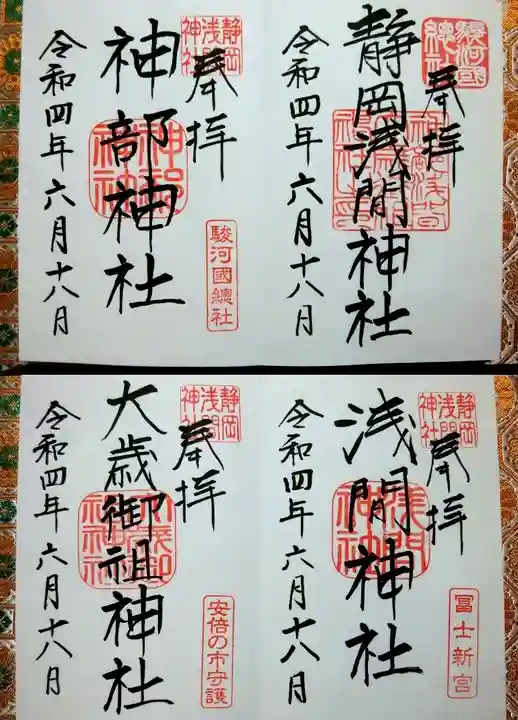 駿河國總社
奉拝
静岡浅間神社
令和四年六月十八日
静岡浅間神社
奉拝
神部神社
神部神社
駿河國總社
令和四年六月十八日
静岡浅間神社
奉拝
浅間神社
浅間神社
冨士新宮
令和四年六月十八日
静岡浅間神社
奉拝
大歳御祖神社
安倍の市守護
令和四年六月十八日